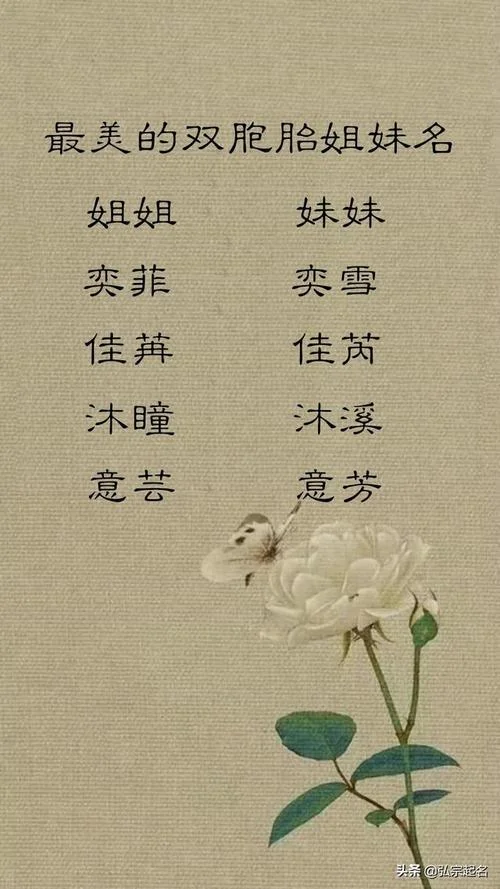 最美的双胞胎姐妹名
姐姐 妹妹
奕菲 奕雪
佳苒 佳芮
沐瞳 沐溪
意芸 意芳
头条 @弘宗起名